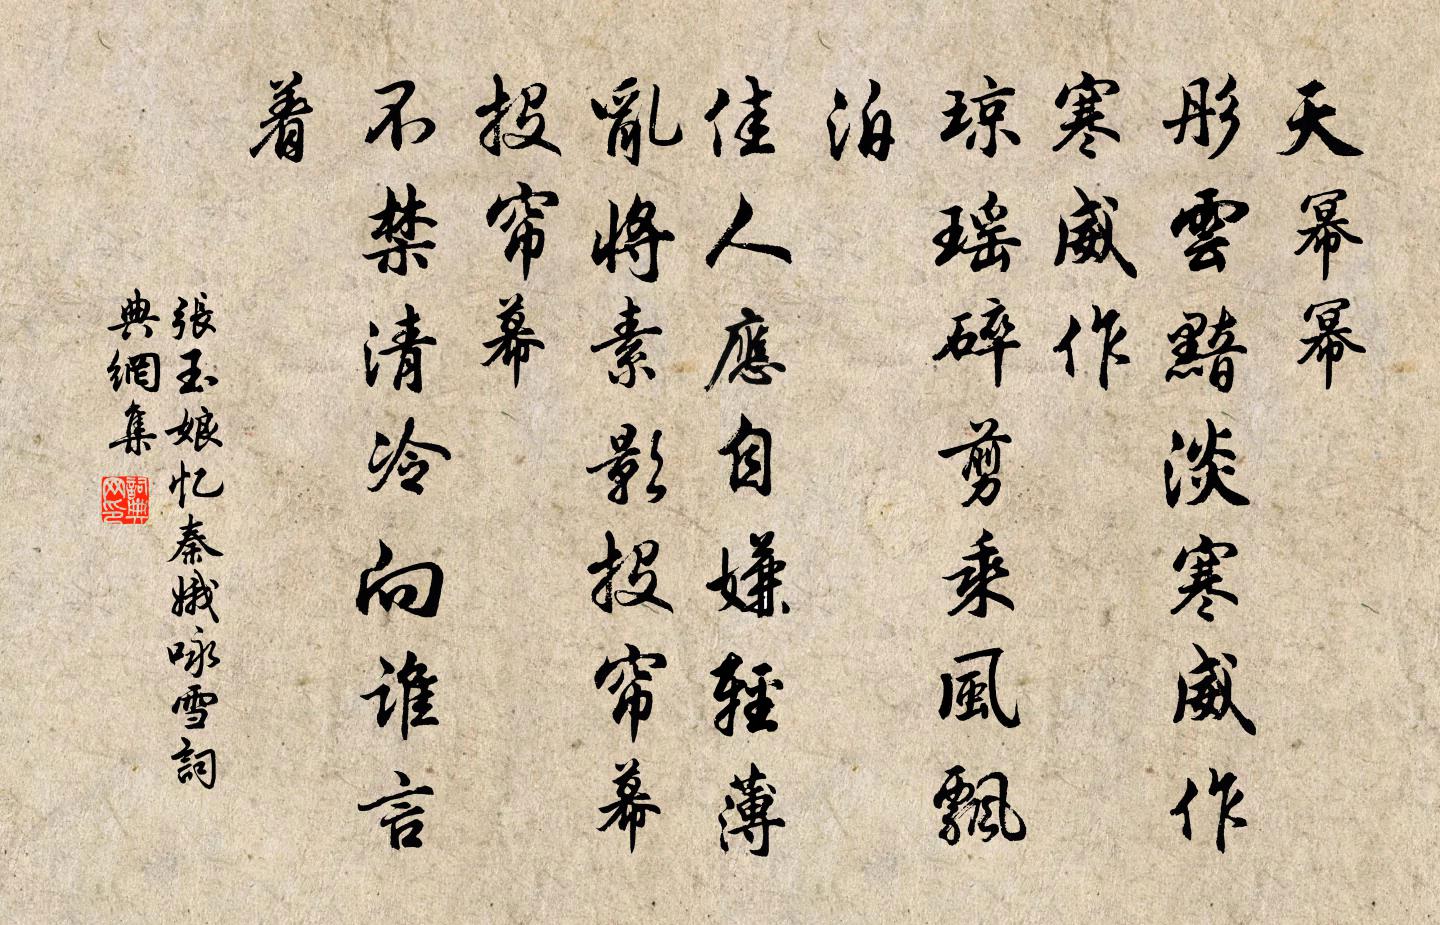 天幂幂
彤雲黯淡寒威作
寒威作
琼瑶碎剪乘風飄
泊
佳人應自嫌輕薄
亂將素影投帘幕
投帘幕
不禁清冷向谁言
着
張玉娘忆秦娥咏雪詞
典網集
詞典
网印